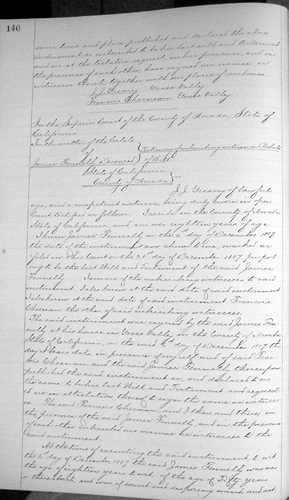 140
same time and place published and declared the above
instrument as and to be his last will and testament
and we at the testators request in his presence and in
the presence of each other have signed our names as
witnesses thereto together with our places of residence.
J. J. Geary Grass Valley
Francis Chenman Grass Valley
In the Superior Court of the County of Nevada, State of
California
In the matter of the Estate
of
James Finnelly, Deceased
Testimony of subscribing witness on Probate
of Will
State of California
County of Nevada
J. J. Geary of lawful
age, and a competent witness being duly sworn in open
Court testifies as follows. I reside in the County of Nevada
State of California and am over eighteen years of age
I knew James Finnelly on the 4th day of December 1907
the date of the instrument now shown to me, marked as
filed in this Court on the day of December 1907 purport
ing to be the last Will and Testament of the said James
Finnelly. I am one of the subscribing witnesses to said
instrument. I also knew at the date of said instrument
Francis
Chenman the other of said subscribing witnesses.
The said instrument was signed by the said James Fin
nelly at his house in Grass Valley in the County of Nevada
State of California, on the said 4th day of December 1907 the
day it bears date in presence of myself and of said Fran
cis Chenman and the said James Finnelly thereupon
published the said instrument as, and declared to us
the same to be his last Will and Testament and requested
us in attestation thereof to sign the same as witness
es. The said Francis Chenman and I then and there, in
the presence of the said James Finnelly and in the presence
of each other subscribed our names as witnesses to the
said instrument.
At the time of executing the said instrument to wit
the 4th day of December 1907 the said James Finnelly was over
the age of eighteen years to wit of the age of fifty years
or thereabouts and was of sound and disposing mind and not